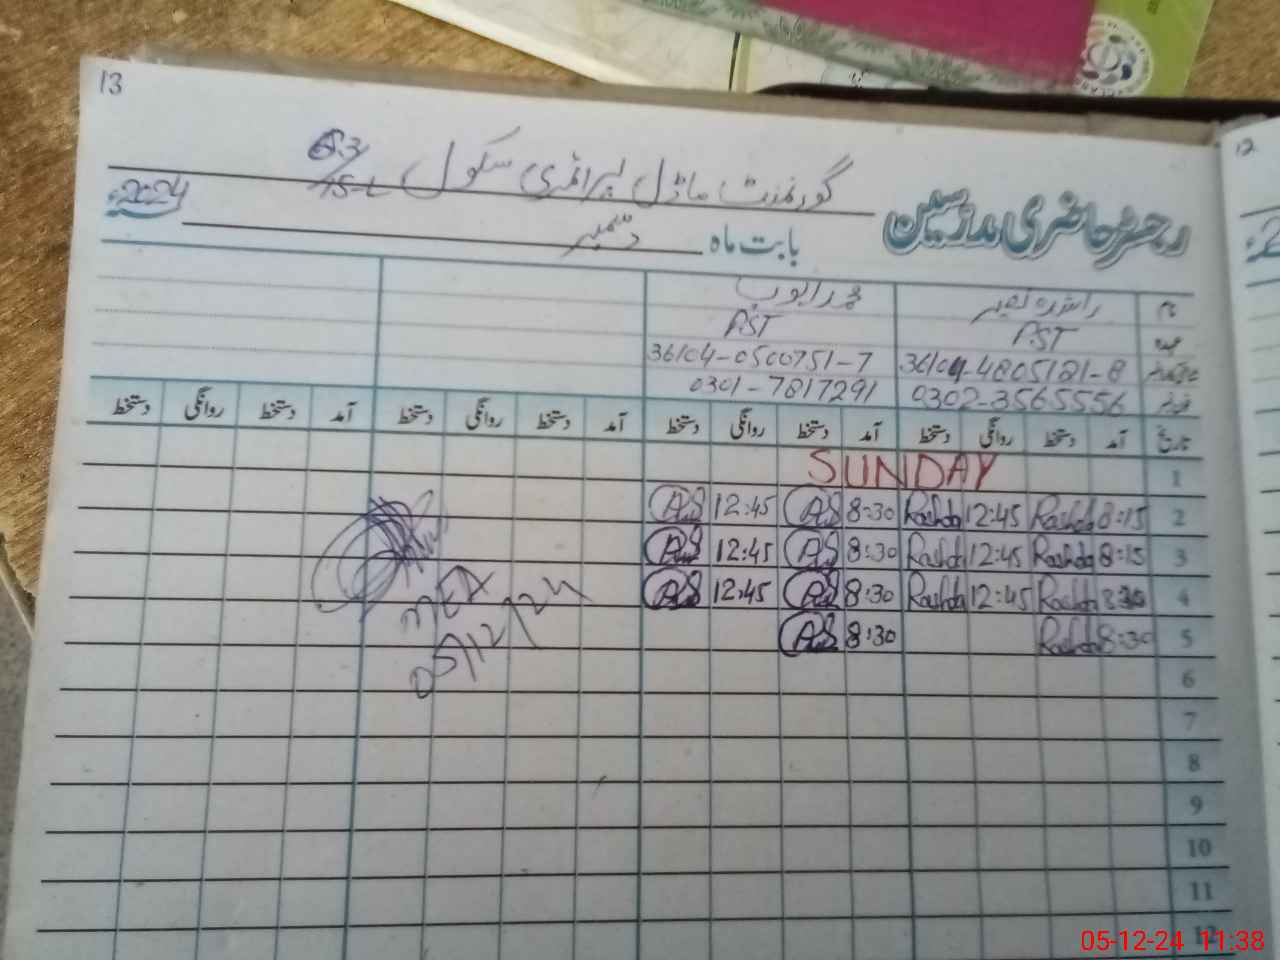 13
گورنمنٹ ماڈل پرائمری سکول 63/15-L
رجسٹر حاضری مدرسین
بابت ماہ دسمبر 2024ء
12
نام راشدہ نصیر محمد ایوب
عہدہ PST PST
36104-4805121-8 36104-0500751-7
0302-3565556 0301-7817291
تاریخ آمد دستخط روانگی دستخط آمد دستخط روانگی دستخط آمد دستخط روانگی دستخط آمد دستخط روانگی دستخط
1 SUNDAY
2 8:15 Rashda 12:45 Rashda 8:30 AS 12:45 AS
3 8:15 Rashda 12:45 Rashda 8:30 AS 12:45 AS
4 8:30 Rashda 12:45 Rashda 8:30 AS 12:45 AS
5 8:30 Rashda 8:30 AS
MEA
05/12/24
6
7
8
9
10
11
12
05-12-24 11:38